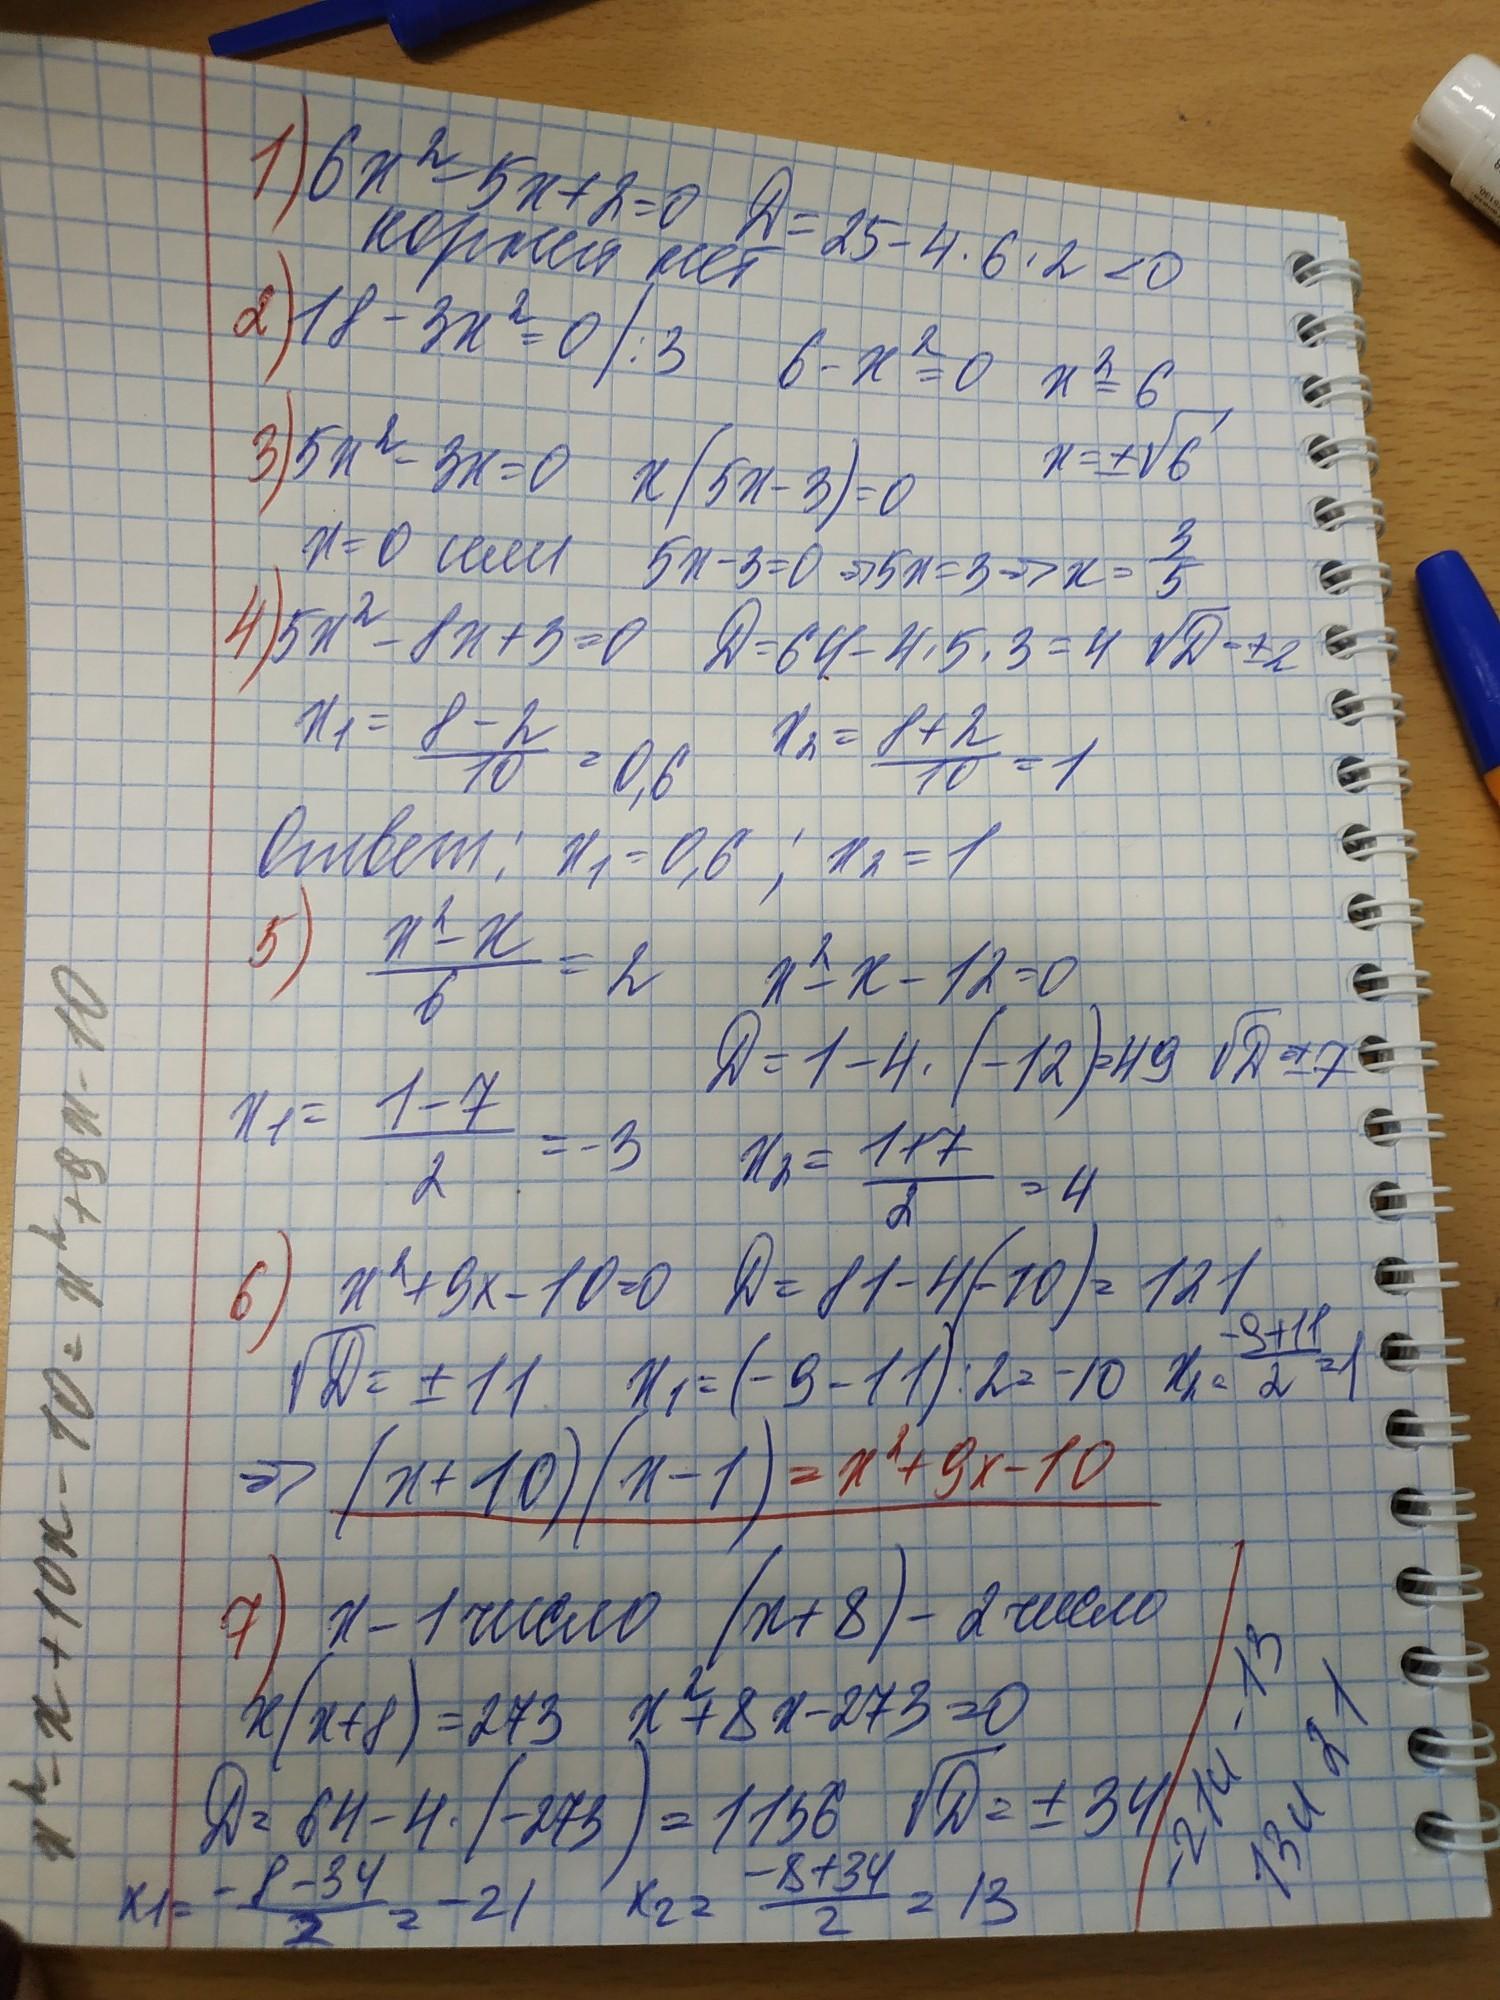 1) 6x² - 5x + 2 = 0 D = 25 - 4 · 6 · 2 < 0
корней нет
2) 18 - 3x² = 0 / : 3 6 - x² = 0 x² = 6
x = ±√6
3) 5x² - 3x = 0 x(5x - 3) = 0
x = 0 или 5x - 3 = 0 => 5x = 3 => x = 3/5
4) 5x² - 8x + 3 = 0 D = 64 - 4 · 5 · 3 = 4 √D = ±2
x₁ = (8 - 2)/10 = 0,6 x₂ = (8 + 2)/10 = 1
Ответ: x₁ = 0,6 ; x₂ = 1
5) (x² - x)/6 = 2 x² - x - 12 = 0
D = 1 - 4 · (-12) = 49 √D = ±7
x₁ = (1 - 7)/2 = -3 x₂ = (1 + 7)/2 = 4
6) x² + 9x - 10 = 0 D = 81 - 4(-10) = 121
√D = ±11 x₁ = (-9 - 11) : 2 = -10 x₂ = (-9 + 11)/2 = 1
=> (x + 10)(x - 1) = x² + 9x - 10
7) x - 1 число (x + 8) - 2 число
x(x + 8) = 273 x² + 8x - 273 = 0
D = 64 - 4 · (-273) = 1156 √D = ±34
x₁ = (-8 - 34)/2 = -21 x₂ = (-8 + 34)/2 = 13
-21 и -13
13 и 21
x² - x + 10x - 10 = x² + 9x - 10